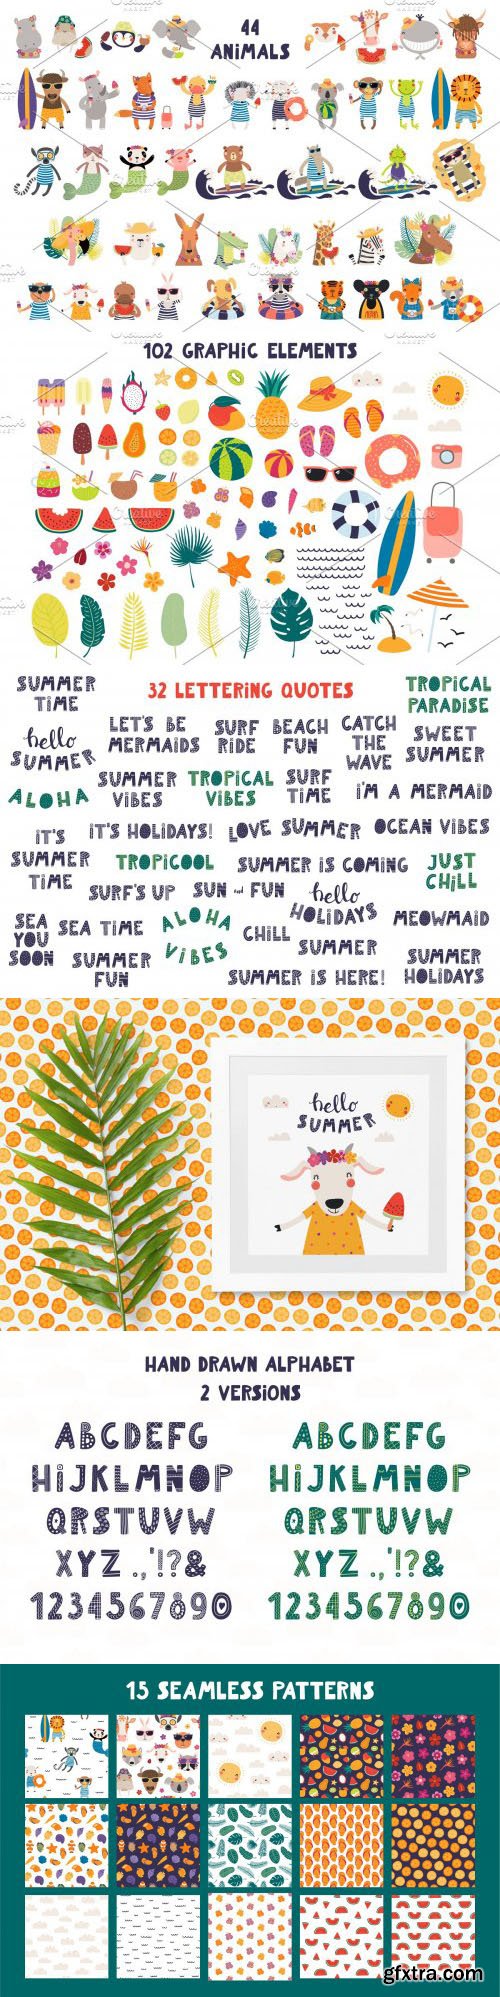 44
ANIMALS
102 GRAPHIC ELEMENTS
32 LETTERING QUOTES
SUMMER
TIME
TROPICAL
PARADISE
hello
SUMMER
LET'S BE
MERMAIDS
SURF
RIDE
BEACH
FUN
CATCH
THE
WAVE
SWEET
SUMMER
ALOHA
SUMMER
VIBES
TROPICAL
VIBES
SURF
TIME
I'M A MERMAID
IT'S
SUMMER
TIME
IT'S HOLIDAYS!
LOVE SUMMER
OCEAN VIBES
TROPICOOL
SUMMER IS COMING
JUST
CHILL
SURF'S UP
SUN and FUN
hello
HOLIDAYS
MEOWMAID
SEA
YOU
SOON
SEA TIME
ALOHA
VIBES
CHILL
SUMMER
SUMMER
FUN
SUMMER IS HERE!
SUMMER
HOLIDAYS
hello
SUMMER
HAND DRAWN ALPHABET
2 VERSIONS
ABCDEFG
HIJKLMNOP
QRSTUVW
XYZ .,'!?&
1234567890
ABCDEFG
HIJKLMNOP
QRSTUVW
XYZ .,'!?&
1234567890
15 SEAMLESS PATTERNS
gfxtra.com